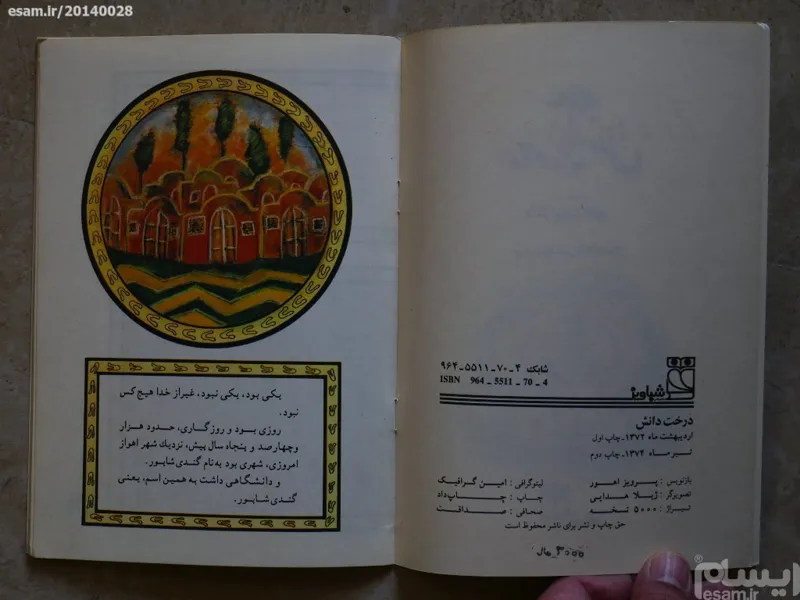 esam.ir/20140028
یکی بود، یکی نبود، غیراز خدا هیچ کس
نبود.
روزی بود و روزگاری، حدود هزار
وچهارصد و پنجاه سال پیش، نزدیك شهر اهواز
امروزی، شهری بود به‌نام گندی شاپور.
و دانشگاهی داشت به همین اسم، یعنی
گندی شاپور.
شابک ۴-۷۰-۵۵۱۱-۹۶۴
ISBN 964-5511-70-4
شباویز
درخت دانش
اردیبهشت ماه ۱۳۷۲-چاپ اول
تیر ماه ۱۳۷۴-چاپ دوم
بازنویس: پرویز امور لیتوگرافی: امین گرافیک
تصویرگر: ژیلا هدایی چاپ: چاپ‌داد
تیراژ: ۵۰۰۰ نسخه صحافی: صداقت
حق چاپ و نشر برای ناشر محفوظ است
ایسام
esam.ir